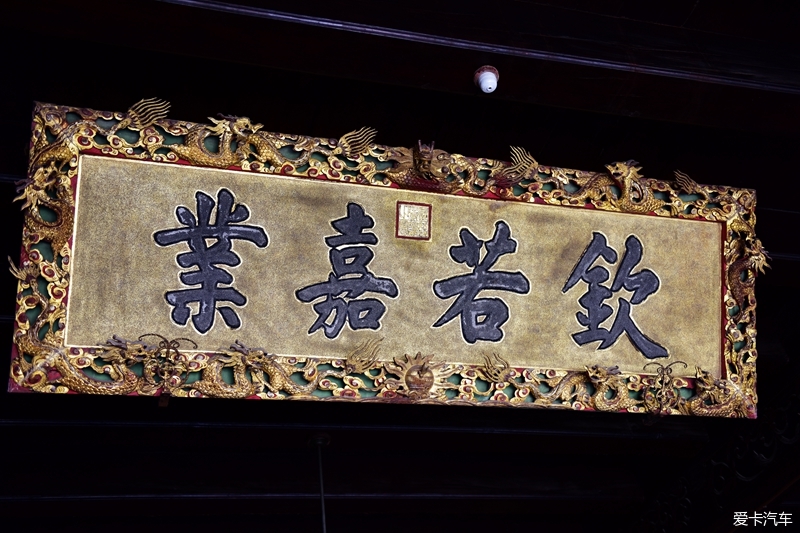 欽若嘉業
爱卡汽车